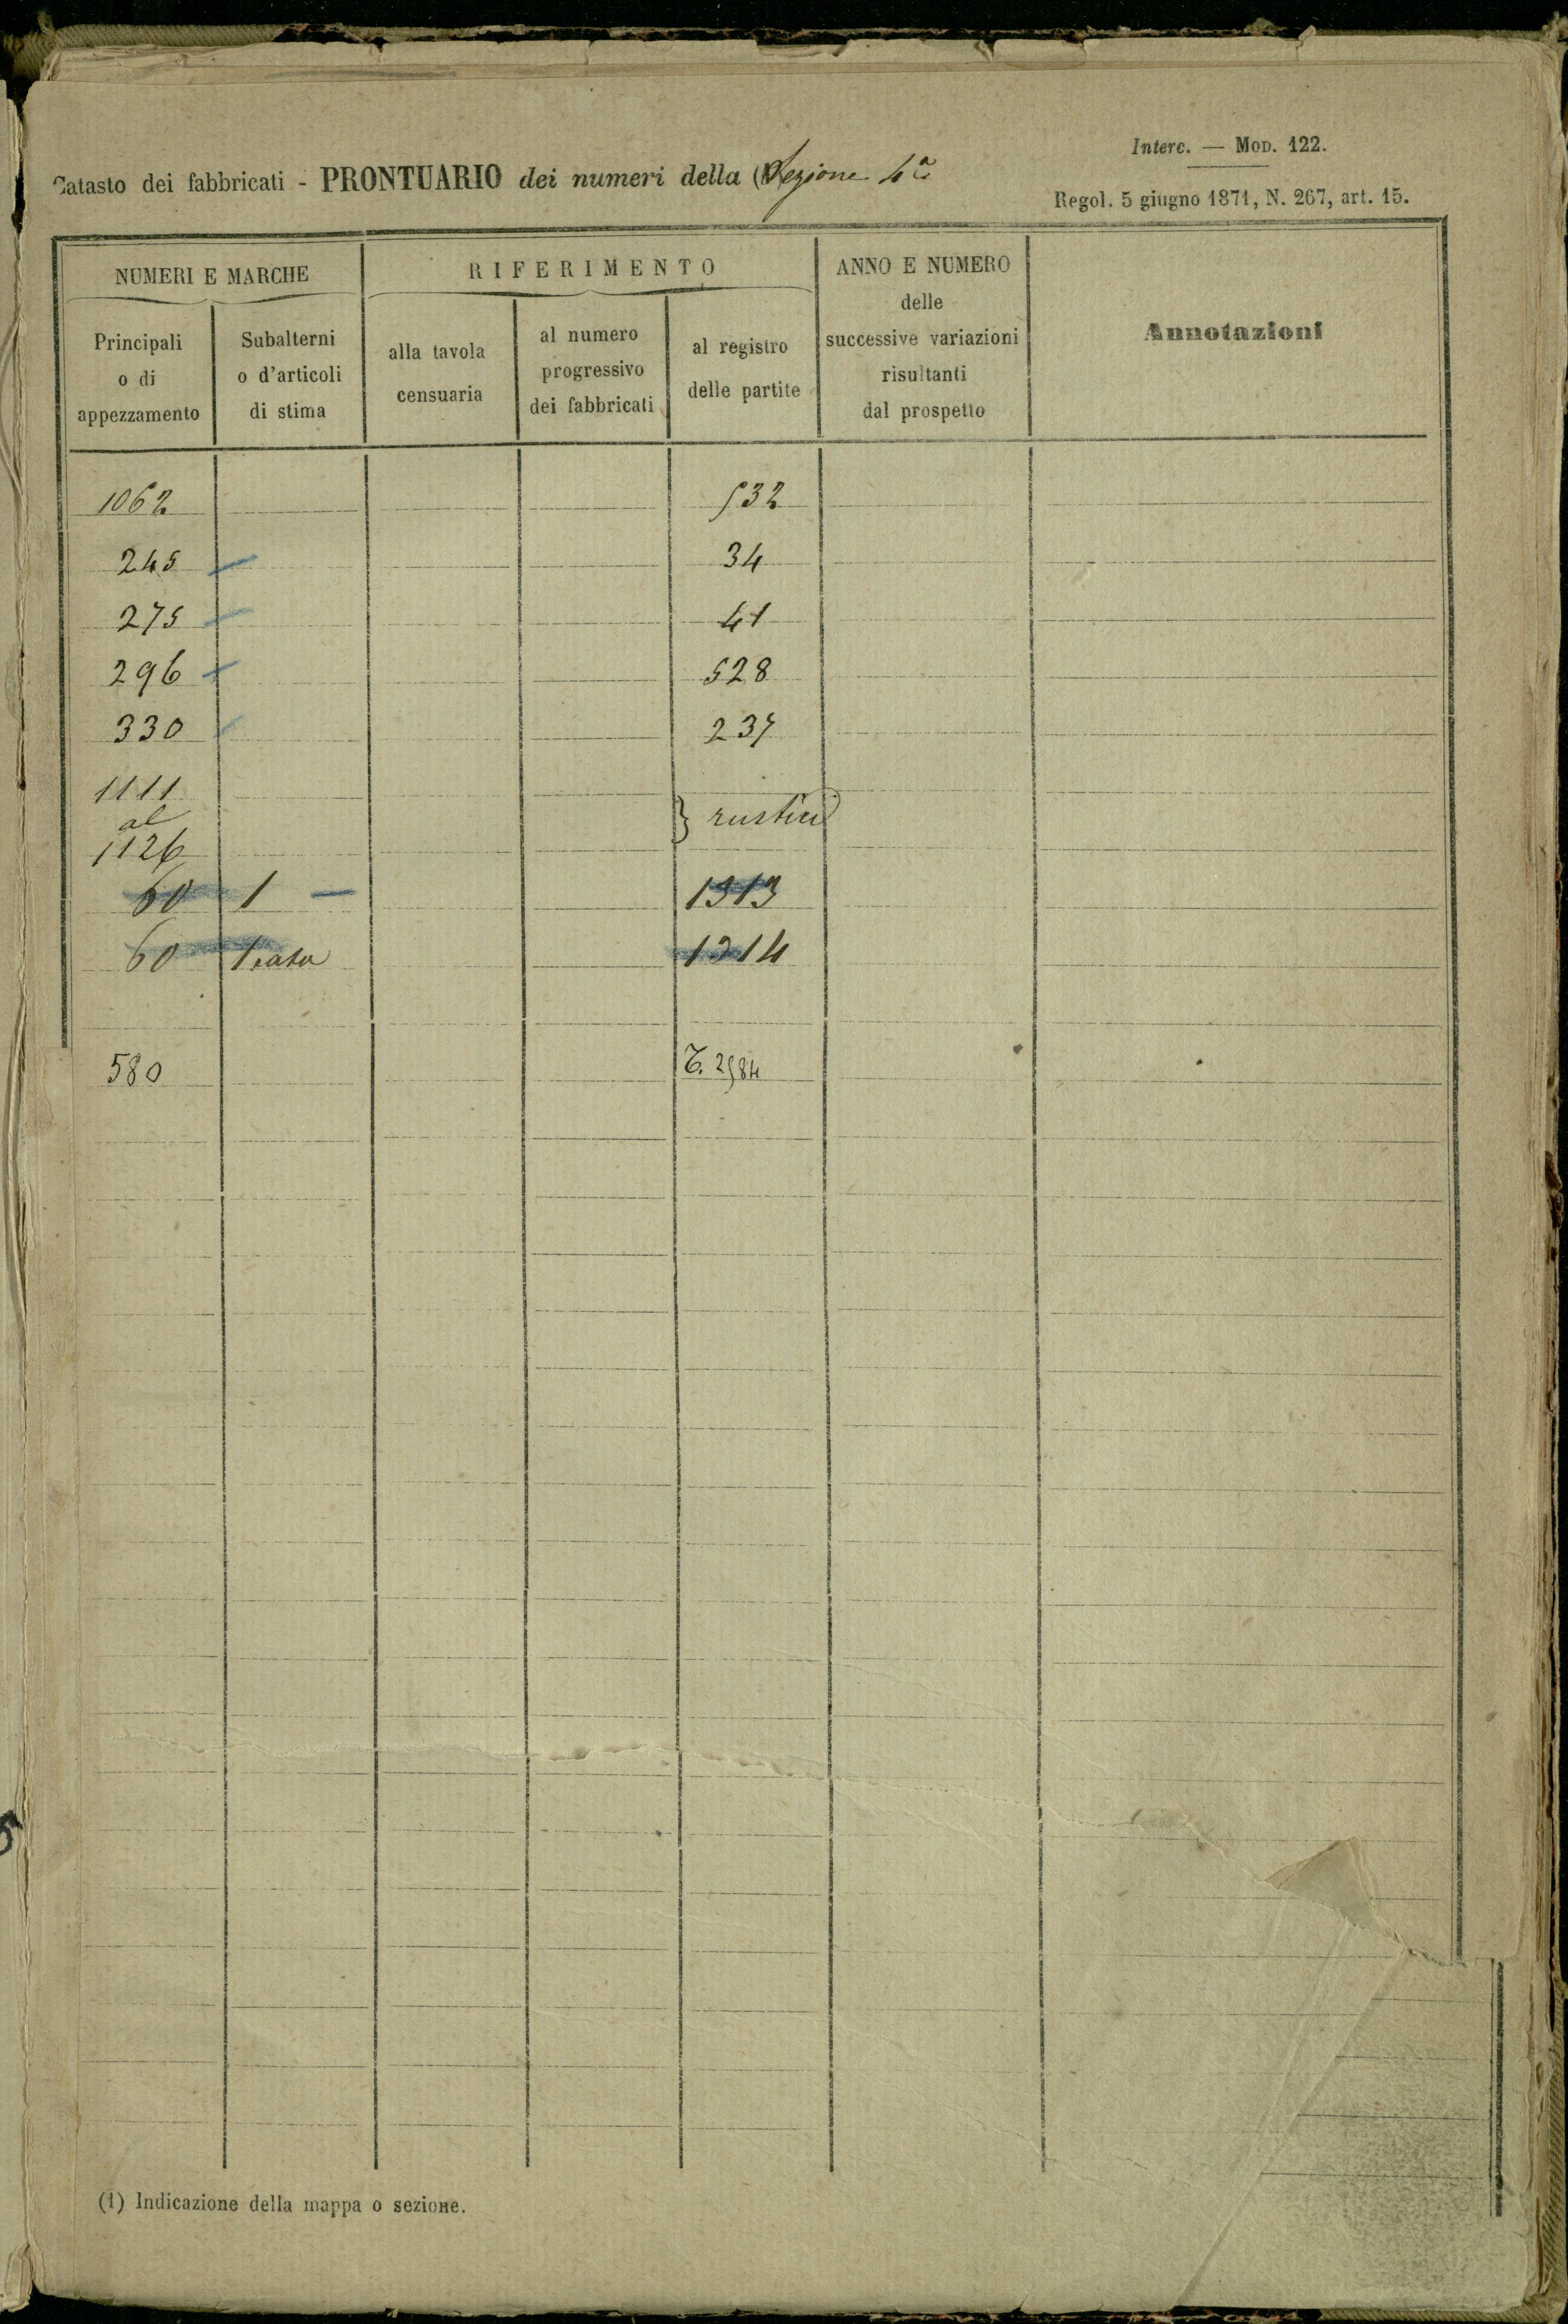 Interc. — Mod. 122.
Catasto dei fabbricati - PRONTUARIO dei numeri della (1) Sezione 4ª
Regol. 5 giugno 1871, N. 267, art. 15.
NUMERI E MARCHE
RIFERIMENTO
ANNO E NUMERO
delle
successive variazioni
risultanti
dal prospetto
Annotazioni
Principali
o di
appezzamento
Subalterni
o d'articoli
di stima
alla tavola
censuaria
al numero
progressivo
dei fabbricati
al registro
delle partite
1062 532
245 34
275 41
296 528
330 235
1111
al } rustici
1126
60 1 — 1313
60 1 1314
580 T. 2584
(1) Indicazione della mappa o sezione.